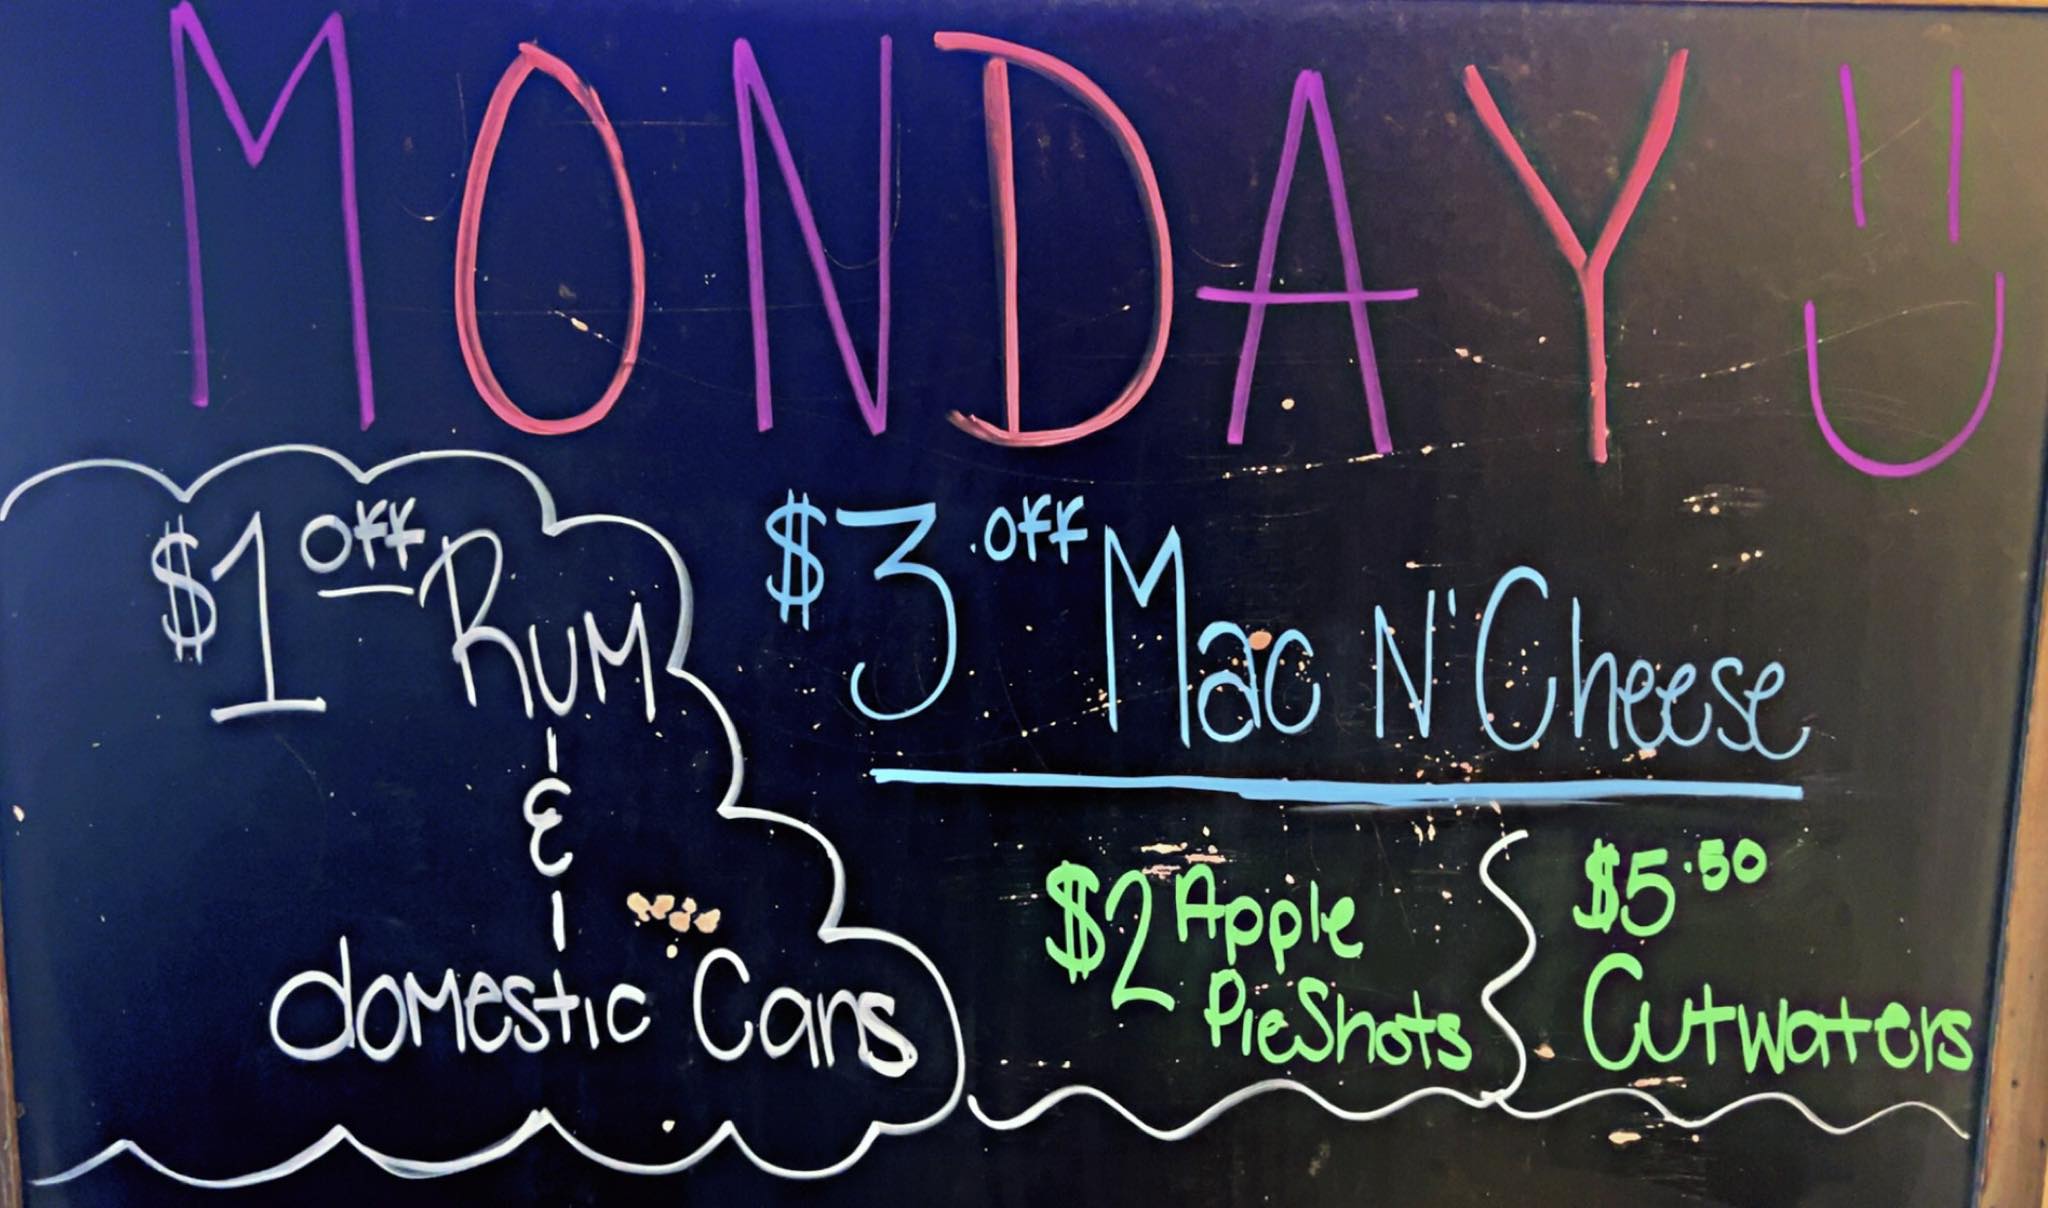 MONDAY
$1 OFF RUM
&
domestic Cans
$3 .OFF Mac N' Cheese
$2 Apple
Pie Shots
$5.50
Cutwaters